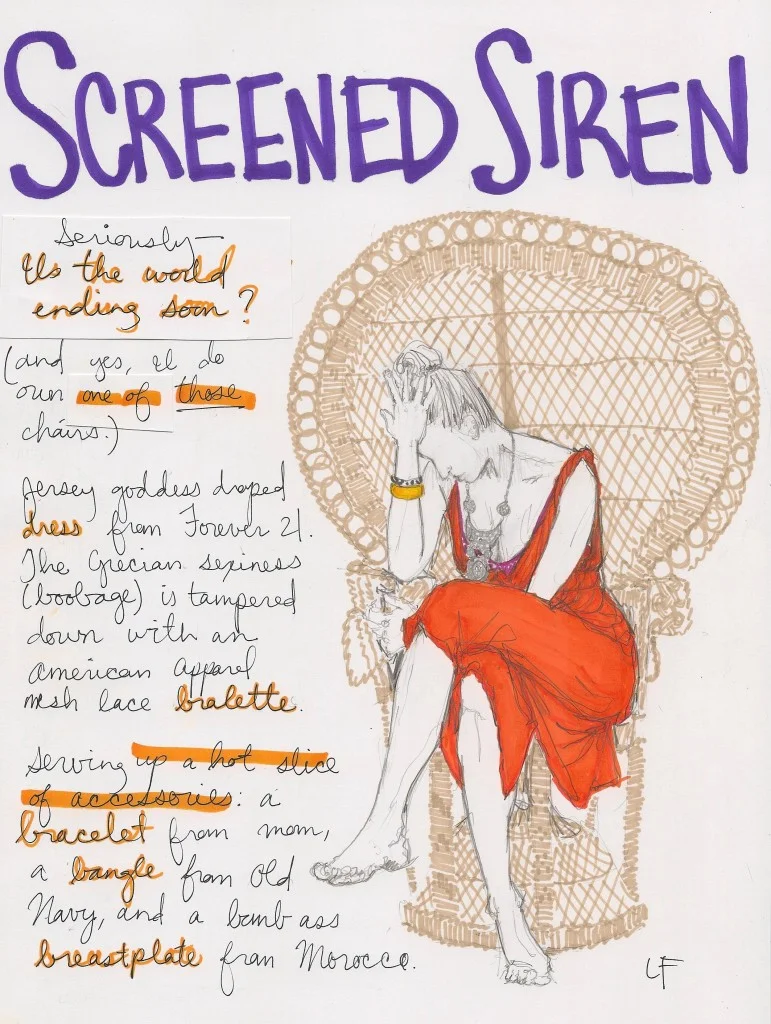 SCREENED SIREN
Seriously—
Is the world
ending soon?
(and yes, I do
own one of those
chairs.)
Jersey goddess draped
dress from Forever 21.
The Grecian sexiness
(boobage) is tampered
down with an
american apparel
mesh lace bralette.
Serving up a hot slice
of accessories: a
bracelet from mom,
a bangle from Old
Navy, and a bomb ass
breastplate from Morocco.
LF